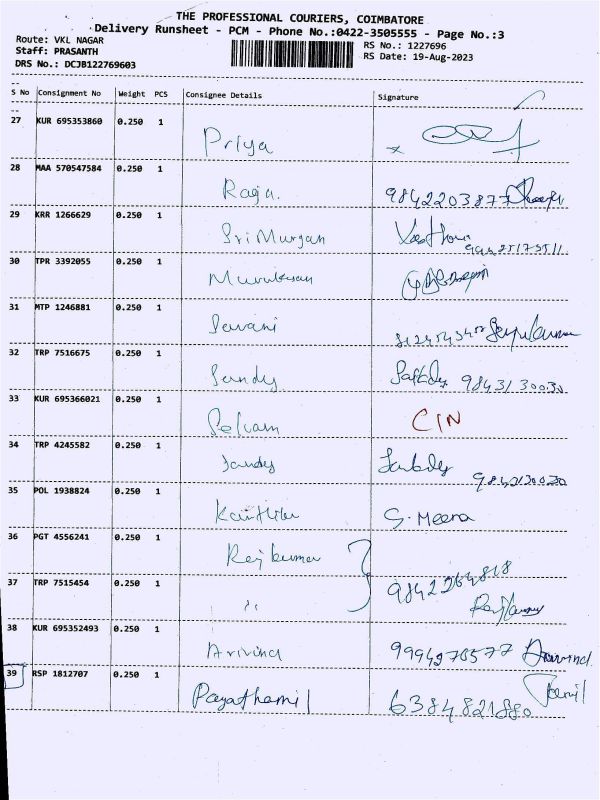 THE PROFESSIONAL COURIERS, COIMBATORE
Delivery Runsheet - PCM - Phone No.:0422-3505555 - Page No.:3
Route: VKL NAGAR
RS No.: 1227696
Staff: PRASANTH
RS Date: 19-Aug-2023
DRS No.: DCJB122769603
S No Consignment No Weight PCS Consignee Details Signature
27 KUR 695353860 0.250 1 Priya
28 MAA 570547584 0.250 1 Raja. 9842203877
29 KRR 1266629 0.250 1 Sri Murgan
30 TPR 3392055 0.250 1 Murukesan
31 MTP 1246881 0.250 1
32 TRP 7516675 0.250 1 Sandy 98431 30030
33 KUR 695366021 0.250 1 Selvam CIN
34 TRP 4245582 0.250 1 Sandy
35 POL 1938824 0.250 1 G. Meena
36 PGT 4556241 0.250 1 Rajkumar
37 TRP 7515454 0.250 1 " 9842264818
38 KUR 695352493 0.250 1 Arivind 9994270577 Aravind
39 RSP 1812707 0.250 1 Payathamil 6384821880